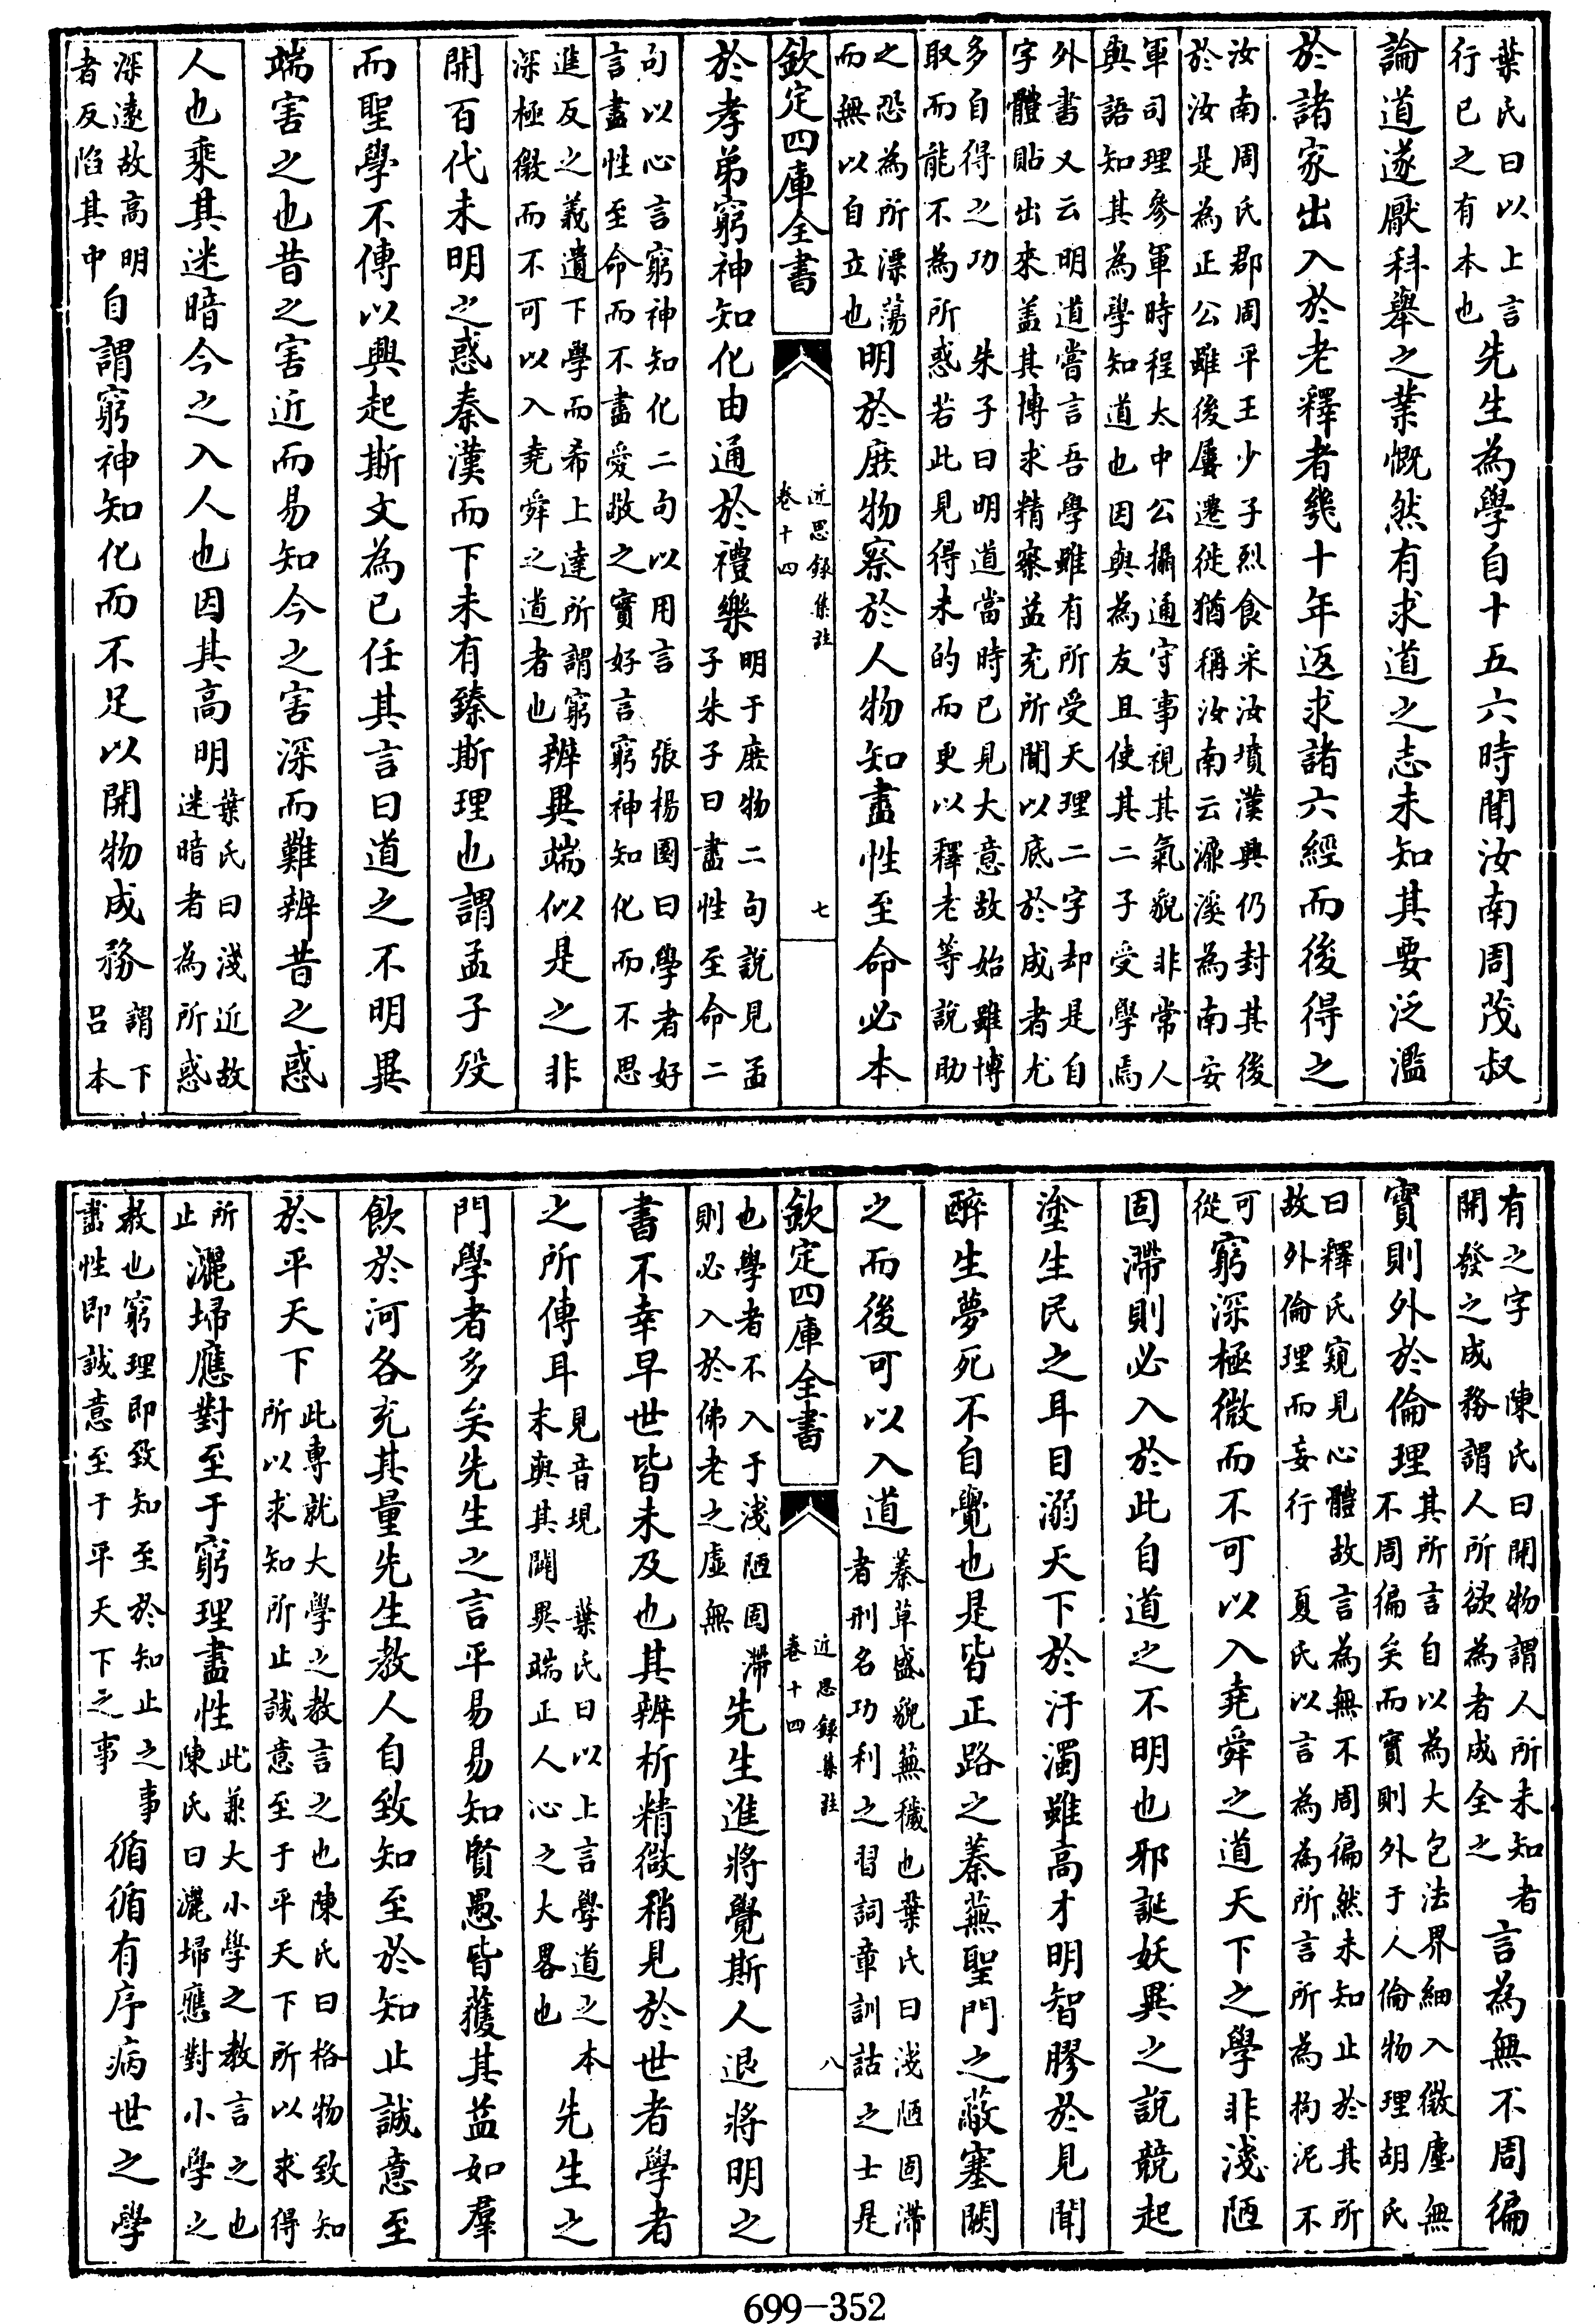 葉氏曰以上言行已之有本也先生為學自十五六時聞汝南周茂叔
論道遂厭科舉之業慨然有求道之志未知其要泛濫
於諸家出入於老釋者幾十年返求諸六經而後得之
汝南周氏郡周平王少子烈食采汝墳漢興仍封其後
於汝是為正公雖後屢遷徙猶稱汝南云濂溪為南安
軍司理參軍時程太中公攝通守事視其氣貌非常人
與語知其為學知道也因與為友且使其二子受學焉
外書又云明道嘗言吾學雖有所受天理二字却是自
字體貼出來盖其博求精察益充所聞以底於成者尤
多自得之功　朱子曰明道當時已見大意故始雖博
取而能不為所惑若此見得未的而更以釋老等說助
之恐為所漂蕩而無以自立也明於庶物察於人物知盡性至命必本
欽定四庫全書
近思録集註
卷十四
七
於孝弟窮神知化由通於禮樂明于庶物二句說見孟子朱子曰盡性至命二
句以心言窮神知化二句以用言　張楊園曰學者好
言盡性至命而不盡愛敬之實好言窮神知化而不思
進反之義遺下學而希上達所謂窮深極微而不可以入堯舜之道者也辨異端似是之非
開百代未明之惑秦漢而下未有臻斯理也謂孟子歿
而聖學不傳以興起斯文為已任其言曰道之不明異
端害之也昔之害近而易知今之害深而難辨昔之惑
人也乘其迷暗今之入人也因其高明葉氏曰淺近故迷暗者為所惑
深遠故高明者反陷其中自謂窮神知化而不足以開物成務謂下呂本
有之字　陳氏曰開物謂人所未知者開發之成務謂人所欲為者成全之言為無不周徧
實則外於倫理其所言自以為大包法界細入微塵無不周徧矣而實則外于人倫物理胡氏
曰釋氏窺見心體故言為無不周徧然未知止於其所
故外倫理而妄行　夏氏以言為為所言所為拘泥不
可從窮深極微而不可以入堯舜之道天下之學非淺陋
固滯則必入於此自道之不明也邪誕妖異之說競起
塗生民之耳目溺天下於汙濁雖高才明智膠於見聞
醉生夢死不自覺也是皆正路之蓁蕪聖門之蔽塞闢
之而後可以入道蓁草盛貌蕪穢也葉氏曰淺陋固滯者刑名功利之習詞章訓詁之士是
欽定四庫全書
近思録集註
卷十四
八
也學者不入于淺陋固滯則必入於佛老之虛無先生進將覺斯人退將明之
書不幸早世皆未及也其辨析精微稍見於世者學者
之所傳耳見音現　葉氏曰以上言學道之本末與其闢異端正人心之大畧也先生之
門學者多矣先生之言平易易知賢愚皆獲其益如羣
飲於河各充其量先生教人自致知至於知止誠意至
於平天下此專就大學之教言之也陳氏曰格物致知所以求知所止誠意至于平天下所以求得
所止灑埽應對至于窮理盡性此兼大小學之教言之也陳氏曰灑埽應對小學之
教也窮理即致知至於知止之事盡性即誠意至于平天下之事循循有序病世之學
699-352